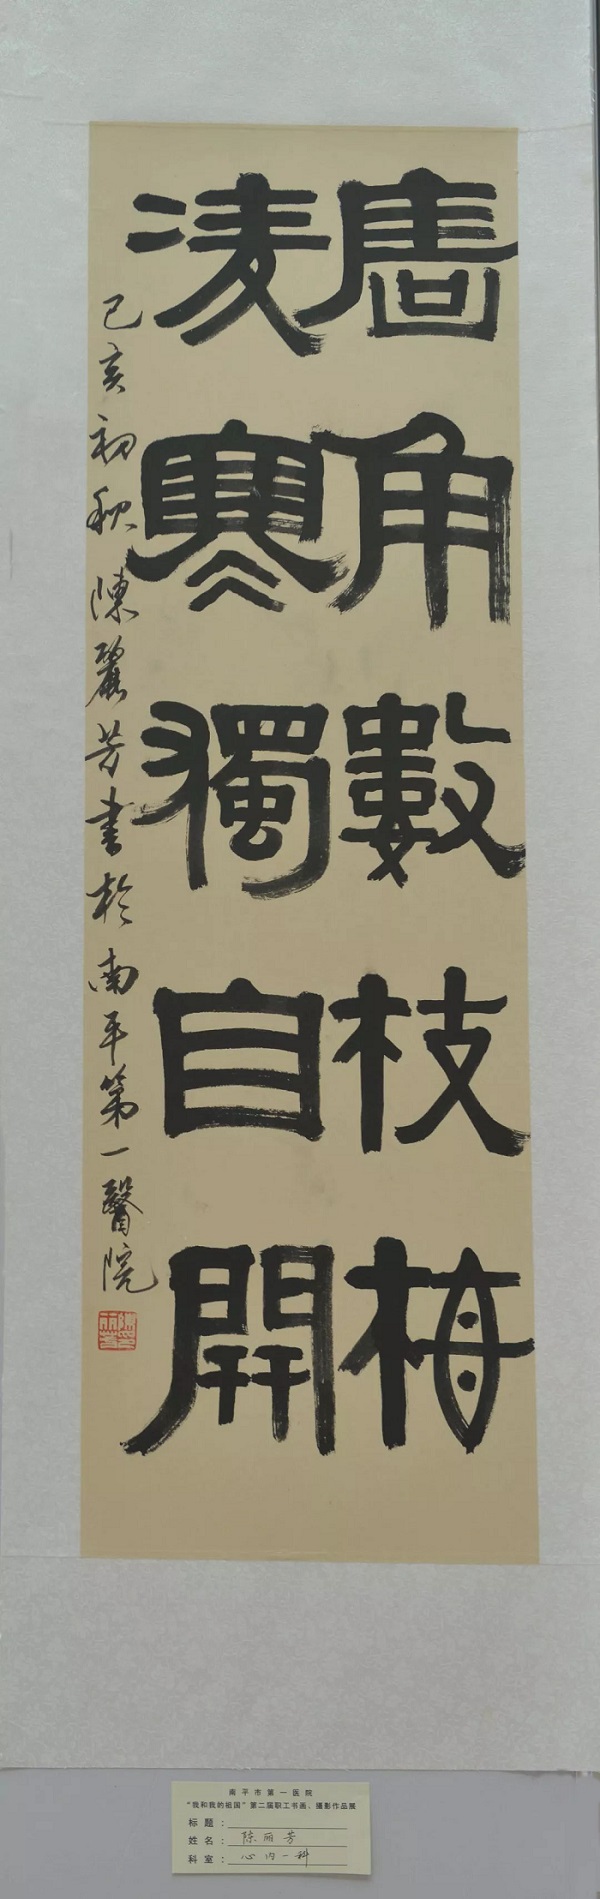 牆角數枝梅
凌寒獨自開
己亥初秋陳麗芳書於南平第一醫院
南平市第一医院
“我和我的祖国”第二届职工书画、摄影作品展
标题：
姓名：陈丽芳
科室：心内一科